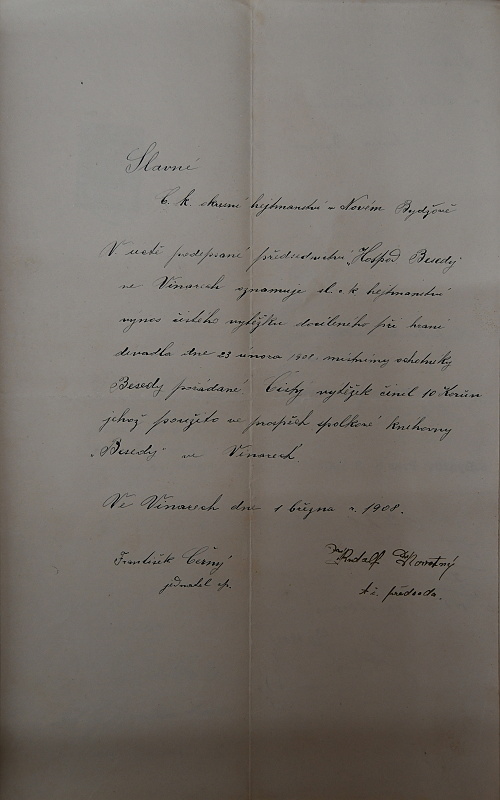 Slavné
C. k. okresní hejtmanství v Novém Bydžově
V úctě podepsané předsednictví „Hospod Besedy
ve Vinarech oznamuje sl. c k hejtmanství
výnos čistého výtěžku docíleného při hraní
divadla dne 23 února 1908. místními ochotníky
Besedy pořádané. Čistý výtěžek činil 10 Korun
jehož použito ve prospěch spolkové knihovny
„Besedy" ve Vinarech.
Ve Vinarech dne 1 března r. 1908.
František Černý
jednatel sp.
Rudolf Novotný
t. č. předseda.